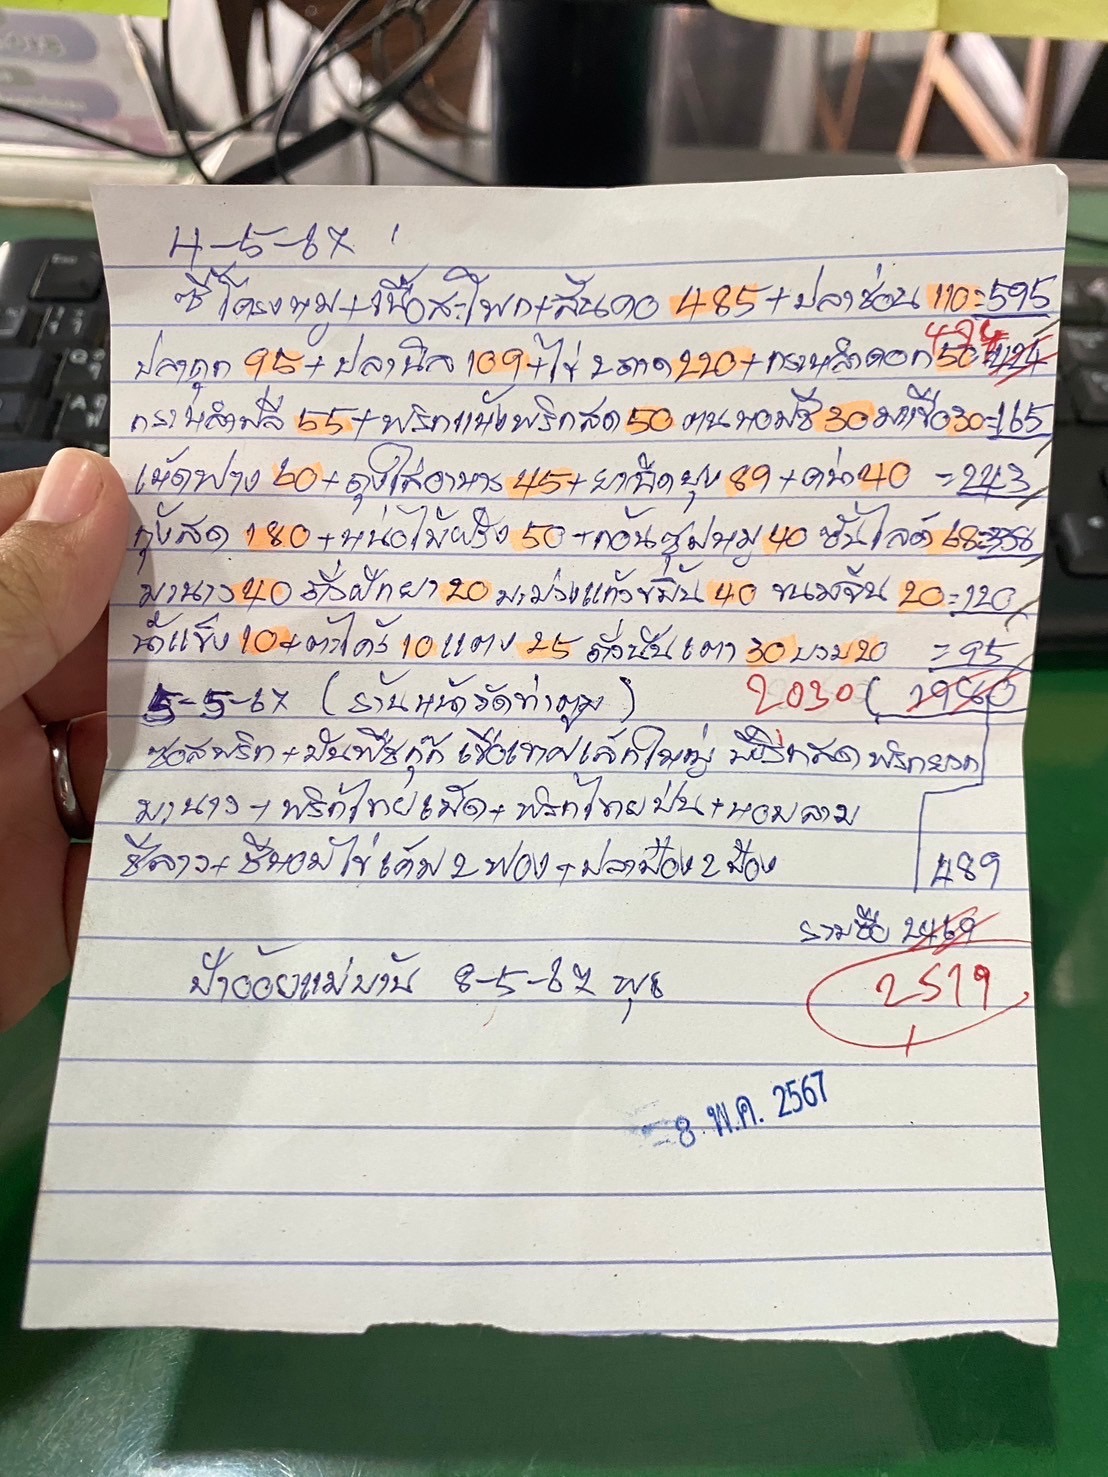 4-5-67
ซี่โครงหมู+เนื้อสะโพก+สันคอ 485+ปลาช่อน 110=595
ปลาดุก 95+ปลานิล 109+ไข่ 2 ถาด 220+กะหล่ำดอก 50 424 474
กะหล่ำปลี 55+พริกแห้งพริกสด 50 ต้นหอมชี 30 มะเขือ 30=165
เห็ดฟาง 60+ถุงใส่อาหาร 45+ยาฉีดยุง 89+คะน้า 40 =243
กุ้งสด 180+หน่อไม้ฝรั่ง 50+ก้อนซุปหมู 40 ซันไลต์ 68=338
มะนาว 40 ถั่วฝักยาว 20 มะม่วงแก้วขมิ้น 40 ขนมจีน 20=120
น้ำแข็ง 10+ตะไคร้ 10 แตง 25 ถั่ว 30 บวบ 20 =95
5-5-67 (ร้านหน้าวัดท่าตูม) 2030 (1980
ซอสพริก+มันฝรั่ง พริกสด พริกหยวก
มะนาว+พริกไทยเม็ด+พริกไทยป่น+หอมลาม
ชีลาว+ชีหอม ไข่เค็ม 2 ฟอง+ปลา 2
489
รวมซื้อ 2469
ป้าอ้อยแม่บ้าน 8-5-67 พุธ 2519
8 พ.ค. 2567